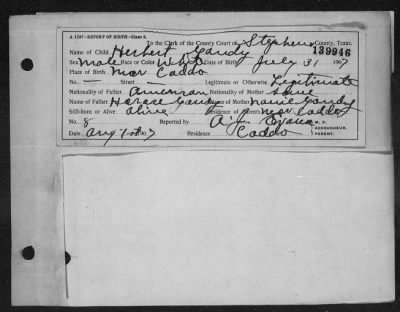 A 1247—REPORT OF BIRTH—Class 3.
To the Clerk of the County Court of Stephens County, Texas.
139946
Name of Child Herbert Gandy
Sex male Race or Color White Date of Birth July 31 1907
Place of Birth near Caddo
No. — Street — Legitimate or Otherwise Legitimate
Nationality of Father American Nationality of Mother same
Name of Father Horace Gandy Name of Mother Nanie Gandy
Still-born or Alive alive Residence of Parents near Caddo
No. 8 Reported by A. J. Evans M. D.
ACCOUCHEUR,
PARENT.
Date Aug 1st 1907 Residence, Caddo